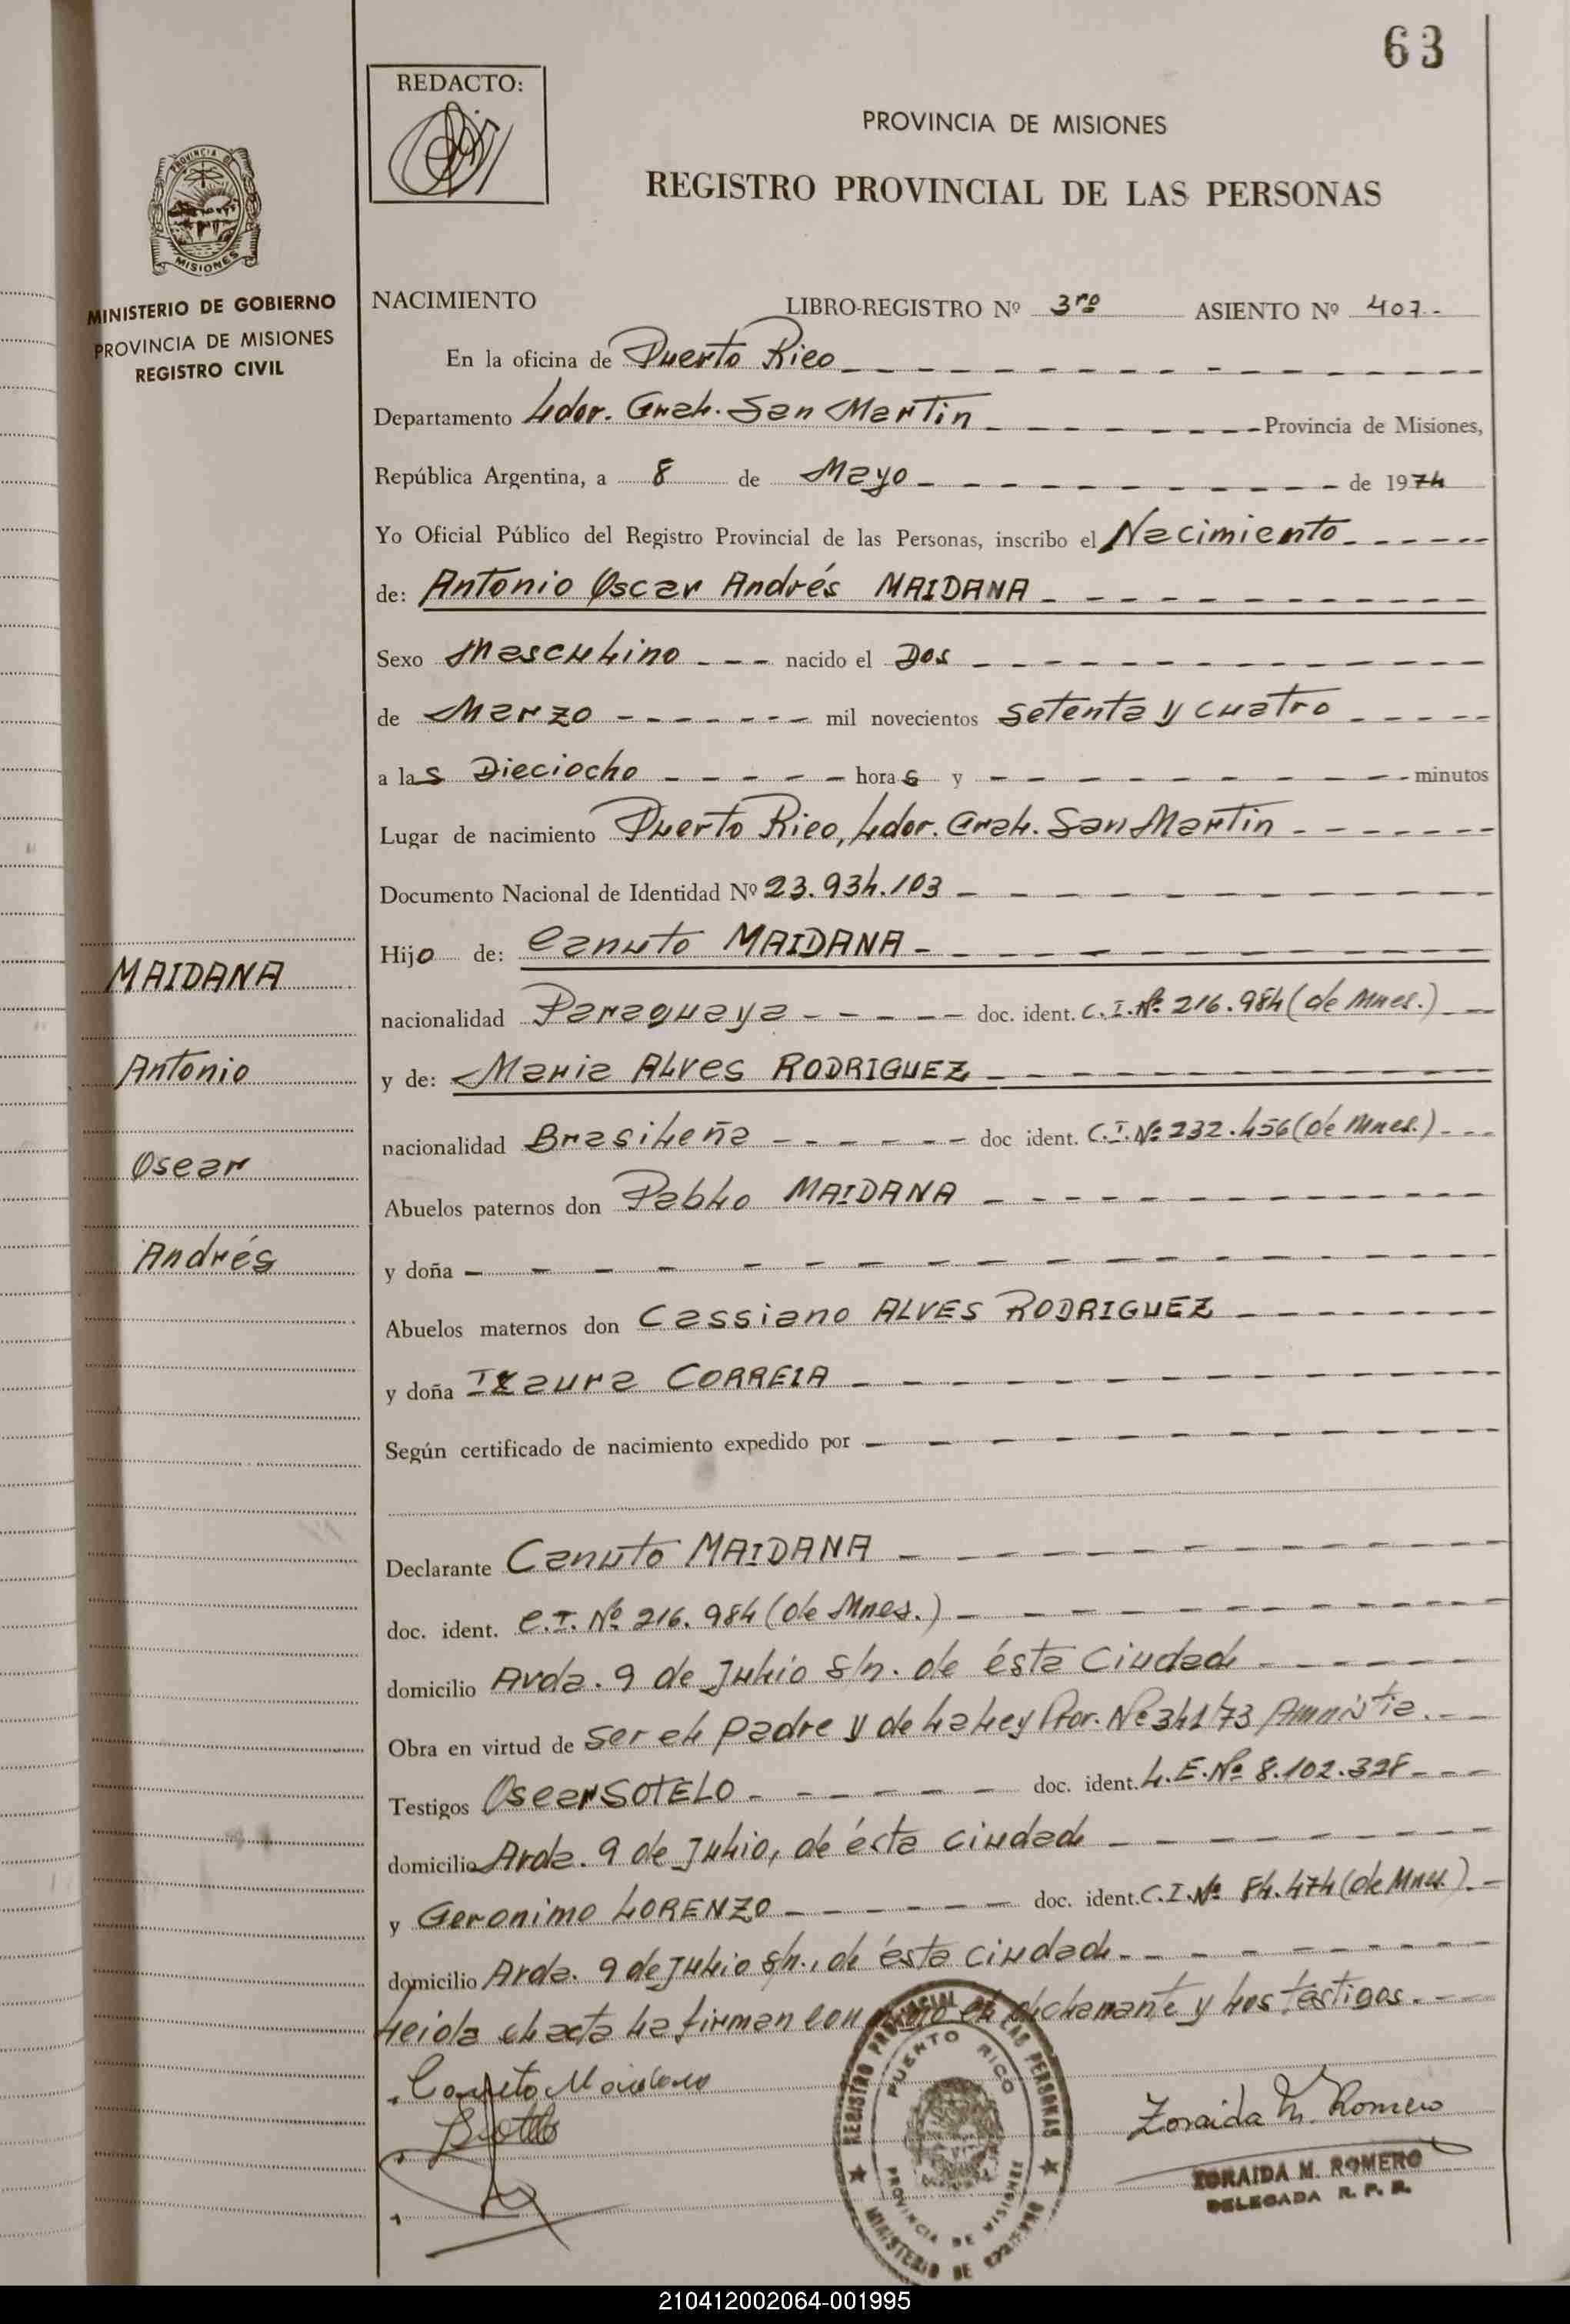 63
REDACTO:
PROVINCIA DE MISIONES
REGISTRO PROVINCIAL DE LAS PERSONAS
PROVINCIA DE
MISIONES
MINISTERIO DE GOBIERNO
PROVINCIA DE MISIONES
REGISTRO CIVIL
NACIMIENTO LIBRO-REGISTRO Nº 3ro ASIENTO Nº 407.-
En la oficina de Puerto Rico
Departamento Lder. Gral. San Martin Provincia de Misiones,
República Argentina, a 8 de Mayo de 1974
Yo Oficial Público del Registro Provincial de las Personas, inscribo el Nacimiento
de: Antonio Oscar Andrés MAIDANA
Sexo Masculino nacido el Dos
de Marzo mil novecientos setenta y cuatro
a las Dieciocho horas y minutos
Lugar de nacimiento Puerto Rico, Lder. Gral. San Martin
Documento Nacional de Identidad Nº 23.934.103
Hijo de: Canuto MAIDANA
nacionalidad Paraguaya doc. ident. C.I.Nº 216.984 (de Mnes.)
y de: Maria ALVES RODRIGUEZ
nacionalidad Brasileña doc ident. C.I.Nº 232.456 (de Mnes.)
Abuelos paternos don Pablo MAIDANA
y doña
Abuelos maternos don Cassiano ALVES RODRIGUEZ
y doña Izaura CORREIA
Según certificado de nacimiento expedido por
Declarante Canuto MAIDANA
doc. ident. C.I. Nº 216.984 (de Mnes.)
domicilio Avda. 9 de Julio s/n. de ésta ciudad
Obra en virtud de ser el padre y de la Ley Pror. Nº 341/73 Amnistia.
Testigos Oscar SOTELO doc. ident. L.E.Nº 8.102.328
domicilio Avda. 9 de Julio, de ésta ciudad
y Geronimo LORENZO doc. ident. C.I.Nº 84.474 (de Mnes.)
domicilio Avda. 9 de Julio s/n., de ésta ciudad
Leida el acta la firman conmigo el declarante y los testigos.
Canuto Maidana
Sotelo
Zoraida M. Romero
ZORAIDA M. ROMERO
DELEGADA R. P. P.
REGISTRO PROVINCIAL DE LAS PERSONAS
PUERTO RICO
PROVINCIA DE MISIONES
MINISTERIO DE GOBIERNO
MAIDANA
Antonio
Oscar
Andrés
210412002064-001995